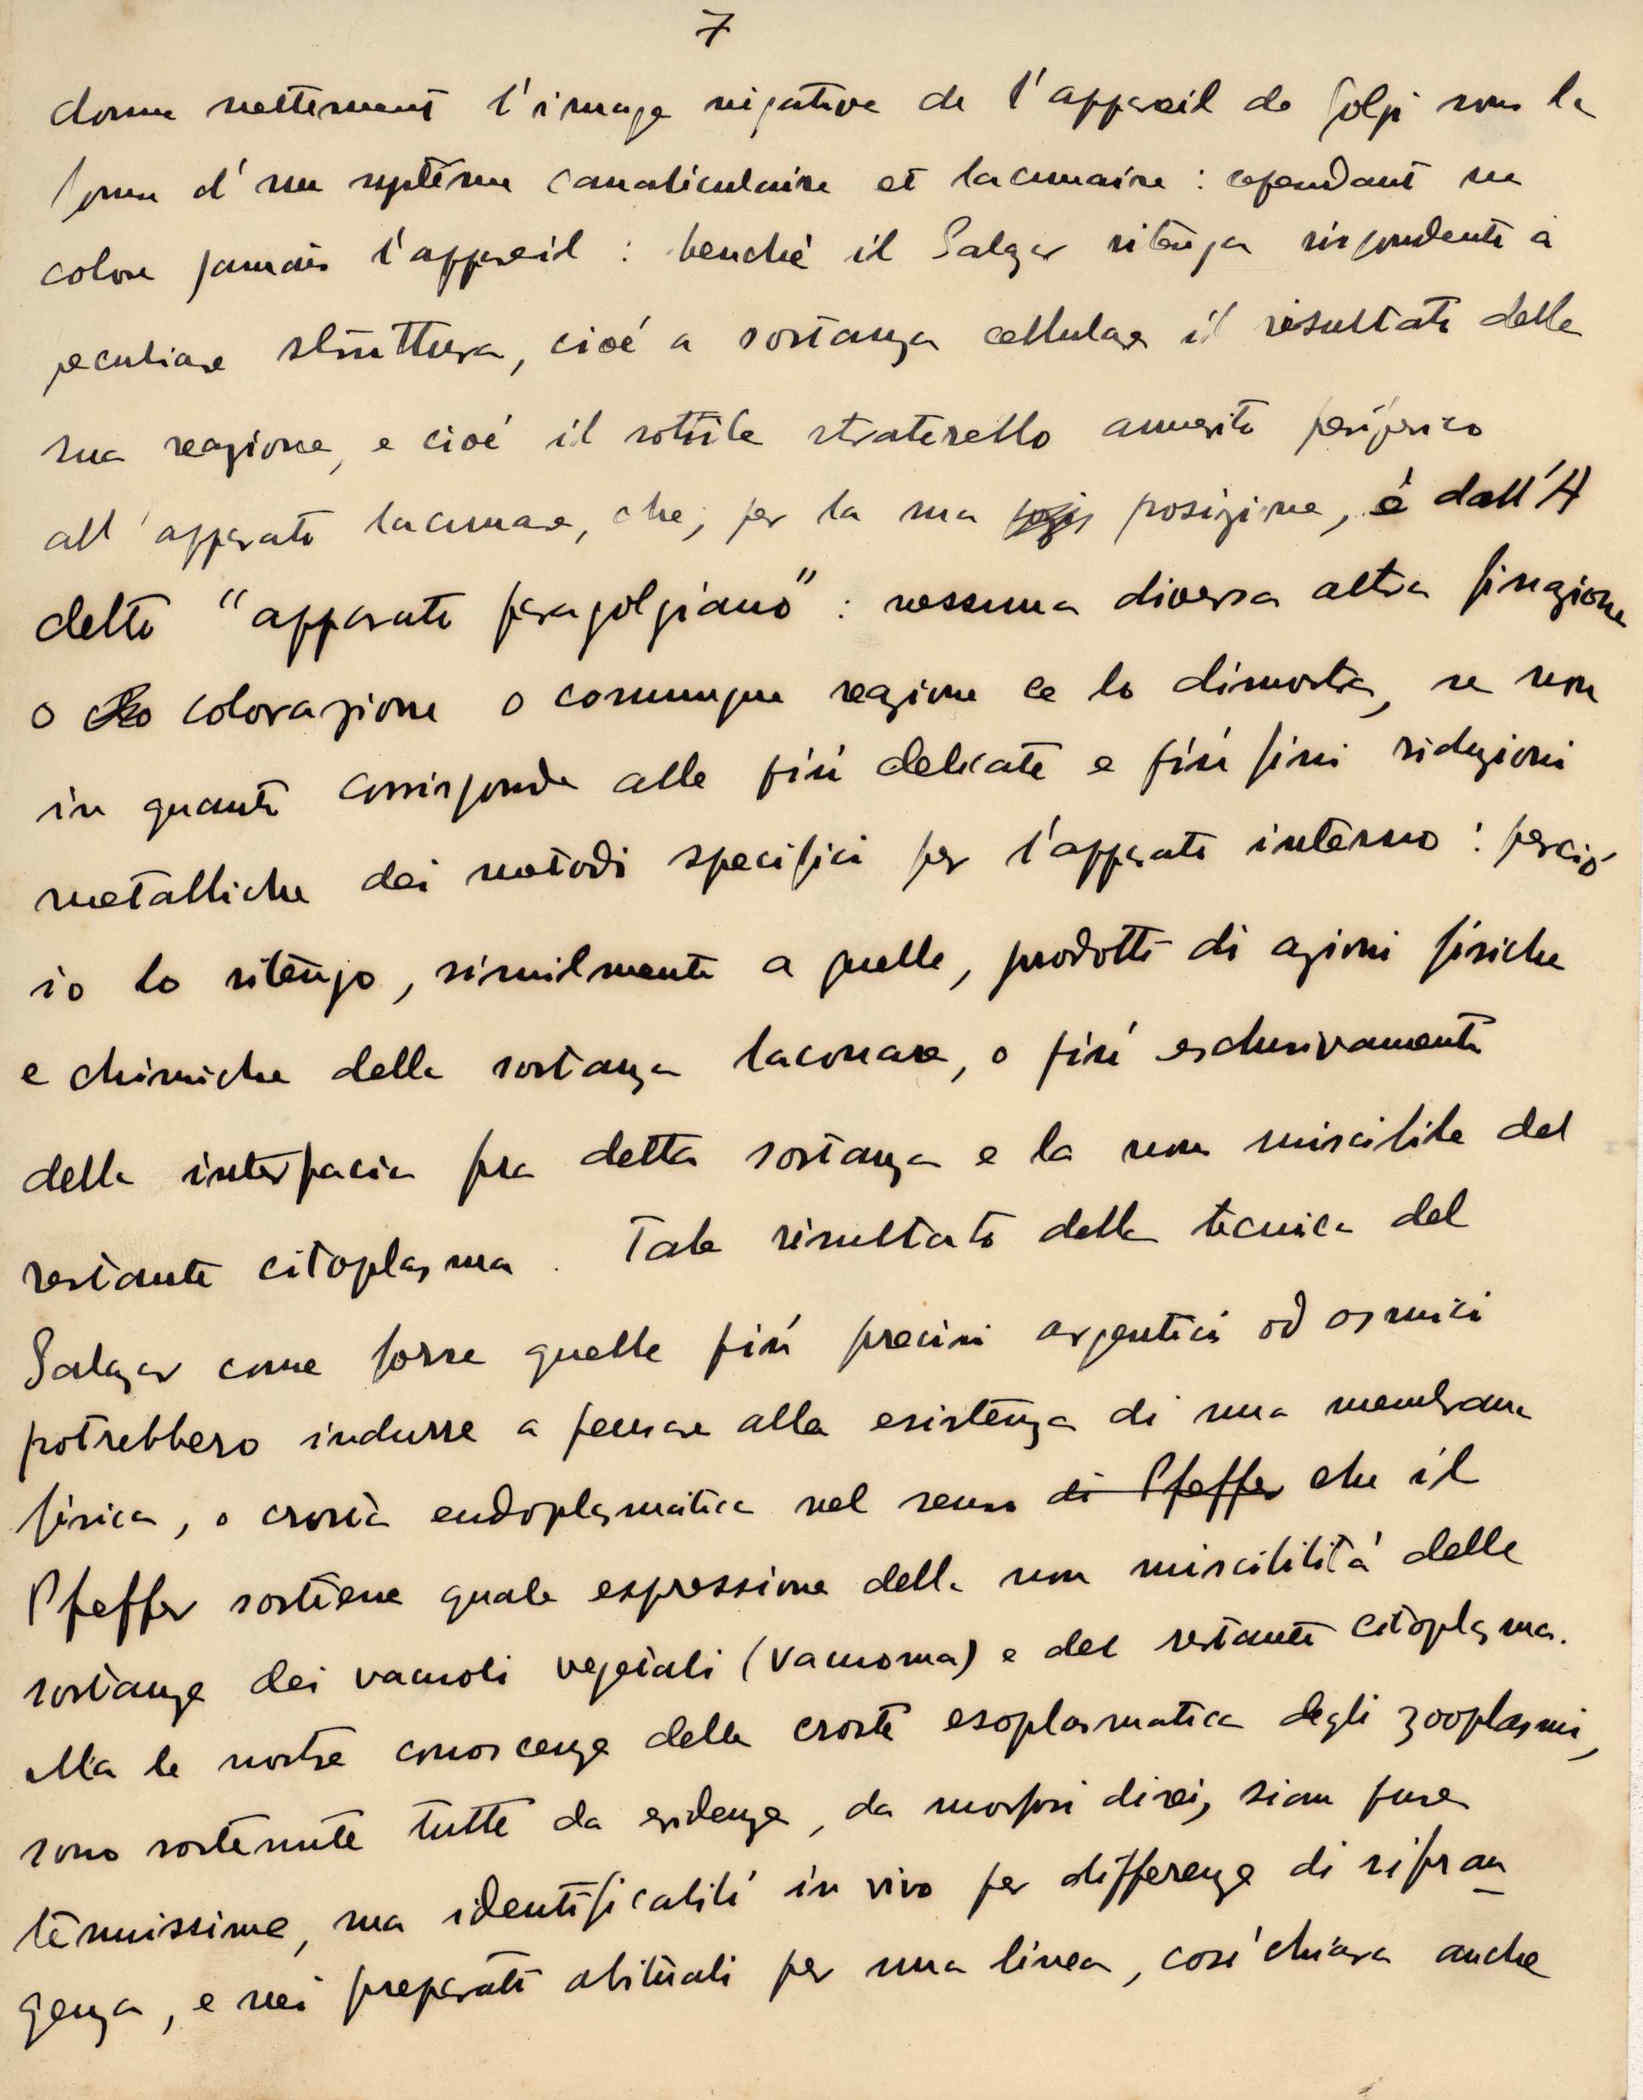 7
donne nettement l'image négative de l'appareil de Golgi sous la
forme d'un système canaliculaire et lacunaire : cependant ne
colore jamais l'appareil : benché il Salazar ritenga rispondente a
peculiare struttura, cioé a sostanza cellulare il risultato della
sua reazione, e cioé il sottile straterello annerito periferico
all'apparato lacunare, che, per la sua posizione, é dall'A
detto "apparato paragolgiano" : nessuna diversa altra fissazione
o colorazione o comunque reazione ce lo dimostra, se non
in quanto corrisponde alle piú delicate e piú fini riduzioni
metalliche dei metodi specifici per l'apparato interno : perció
io lo ritengo, similmente a quelle, prodotto di azioni fisiche
e chimiche della sostanza lacunare, o piú esclusivamente
della interfacia fra detta sostanza e la non miscibile del
restante citoplasma. Tale risultato della tecnica del
Salazar come forse quelle piú precisi argentici od osmici
potrebbero indurre a pensare alla esistenza di una membrana
fisica, o crosta endoplasmatica nel senso di Pfeffer che il
Pfeffer sostiene quale espressione della non miscibilitá delle
sostanze dei vacuoli vegetali (vacuoma) e del restante citoplasma.
Ma le nostre conoscenze della crosta esoplasmatica degli zooplasmi,
sono sostenute tutte da evidenze, da morfosi direi, sian pure
tenuissime, ma identificabili in vivo per differenze di rifran
genza, e nei preparati abituali per una linea, cosí chiara anche